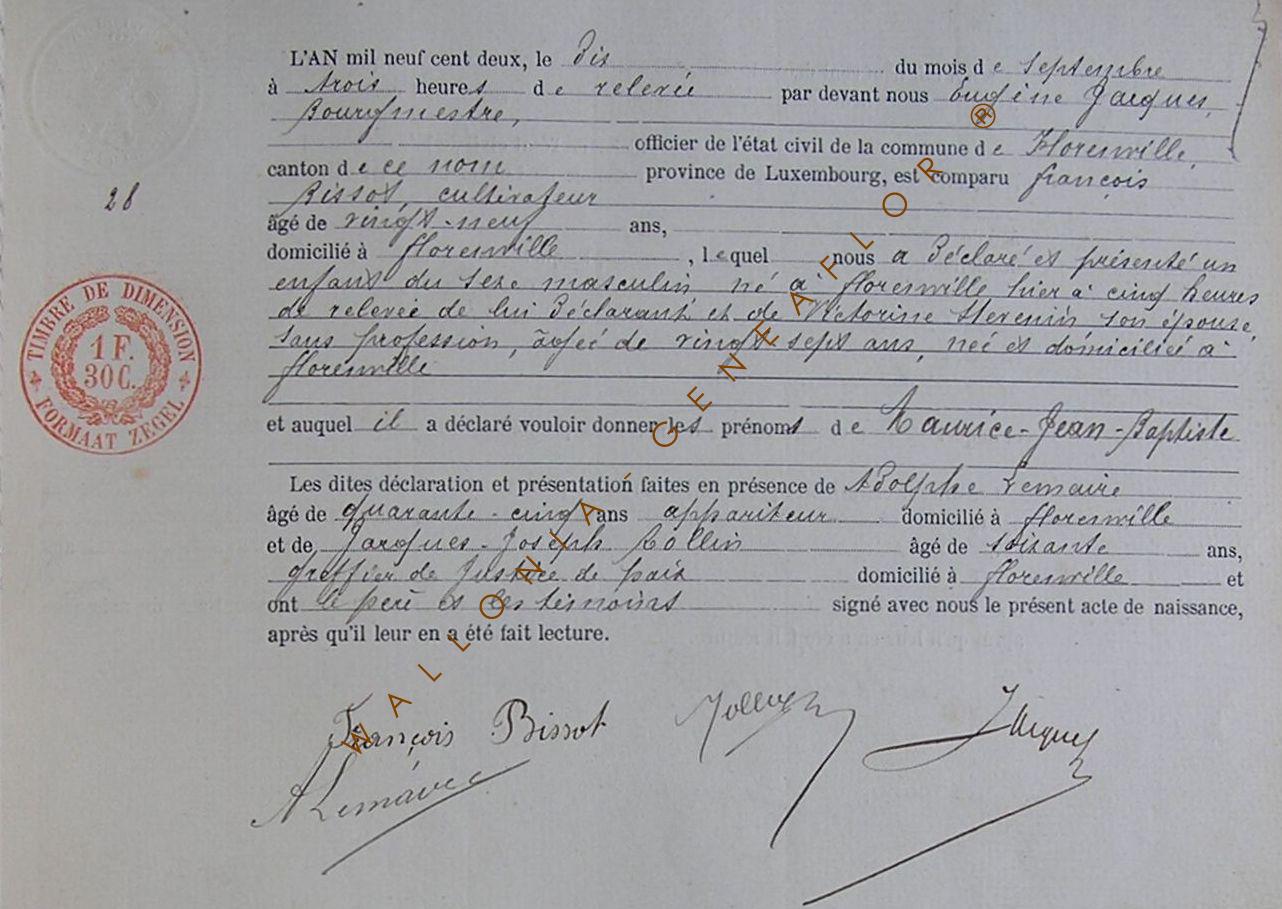 L'AN mil neuf cent deux, le Dix du mois de Septembre
à trois heures de relevée par devant nous Eugène Jacques,
Bourgmestre,
officier de l'état civil de la commune de Florenville,
canton de ce nom province de Luxembourg, est comparu François
Bissot, cultivateur
âgé de vingt-neuf ans,
domicilié à Florenville, lequel nous a déclaré et présenté un
enfant du sexe masculin né à Florenville hier à cinq heures
de relevée de lui déclarant et de Victorine Stevenin son épouse,
sans profession, âgée de vingt sept ans, née et domiciliée à
Florenville
et auquel il a déclaré vouloir donner les prénoms de Maurice-Jean-Baptiste
Les dites déclaration et présentation faites en présence de Adolphe Lemaire
âgé de quarante-cinq ans appariteur domicilié à Florenville
et de Jacques-Joseph Collin âgé de soixante ans,
greffier de Justice de paix domicilié à Florenville et
ont le père et les témoins signé avec nous le présent acte de naissance,
après qu'il leur en a été fait lecture.
28
TIMBRE DE DIMENSION
1 F.
30 C.
FORMAAT ZEGEL
François Bissot
Jacques
A Lemaire
WALLONIA-GENEAFLOR®